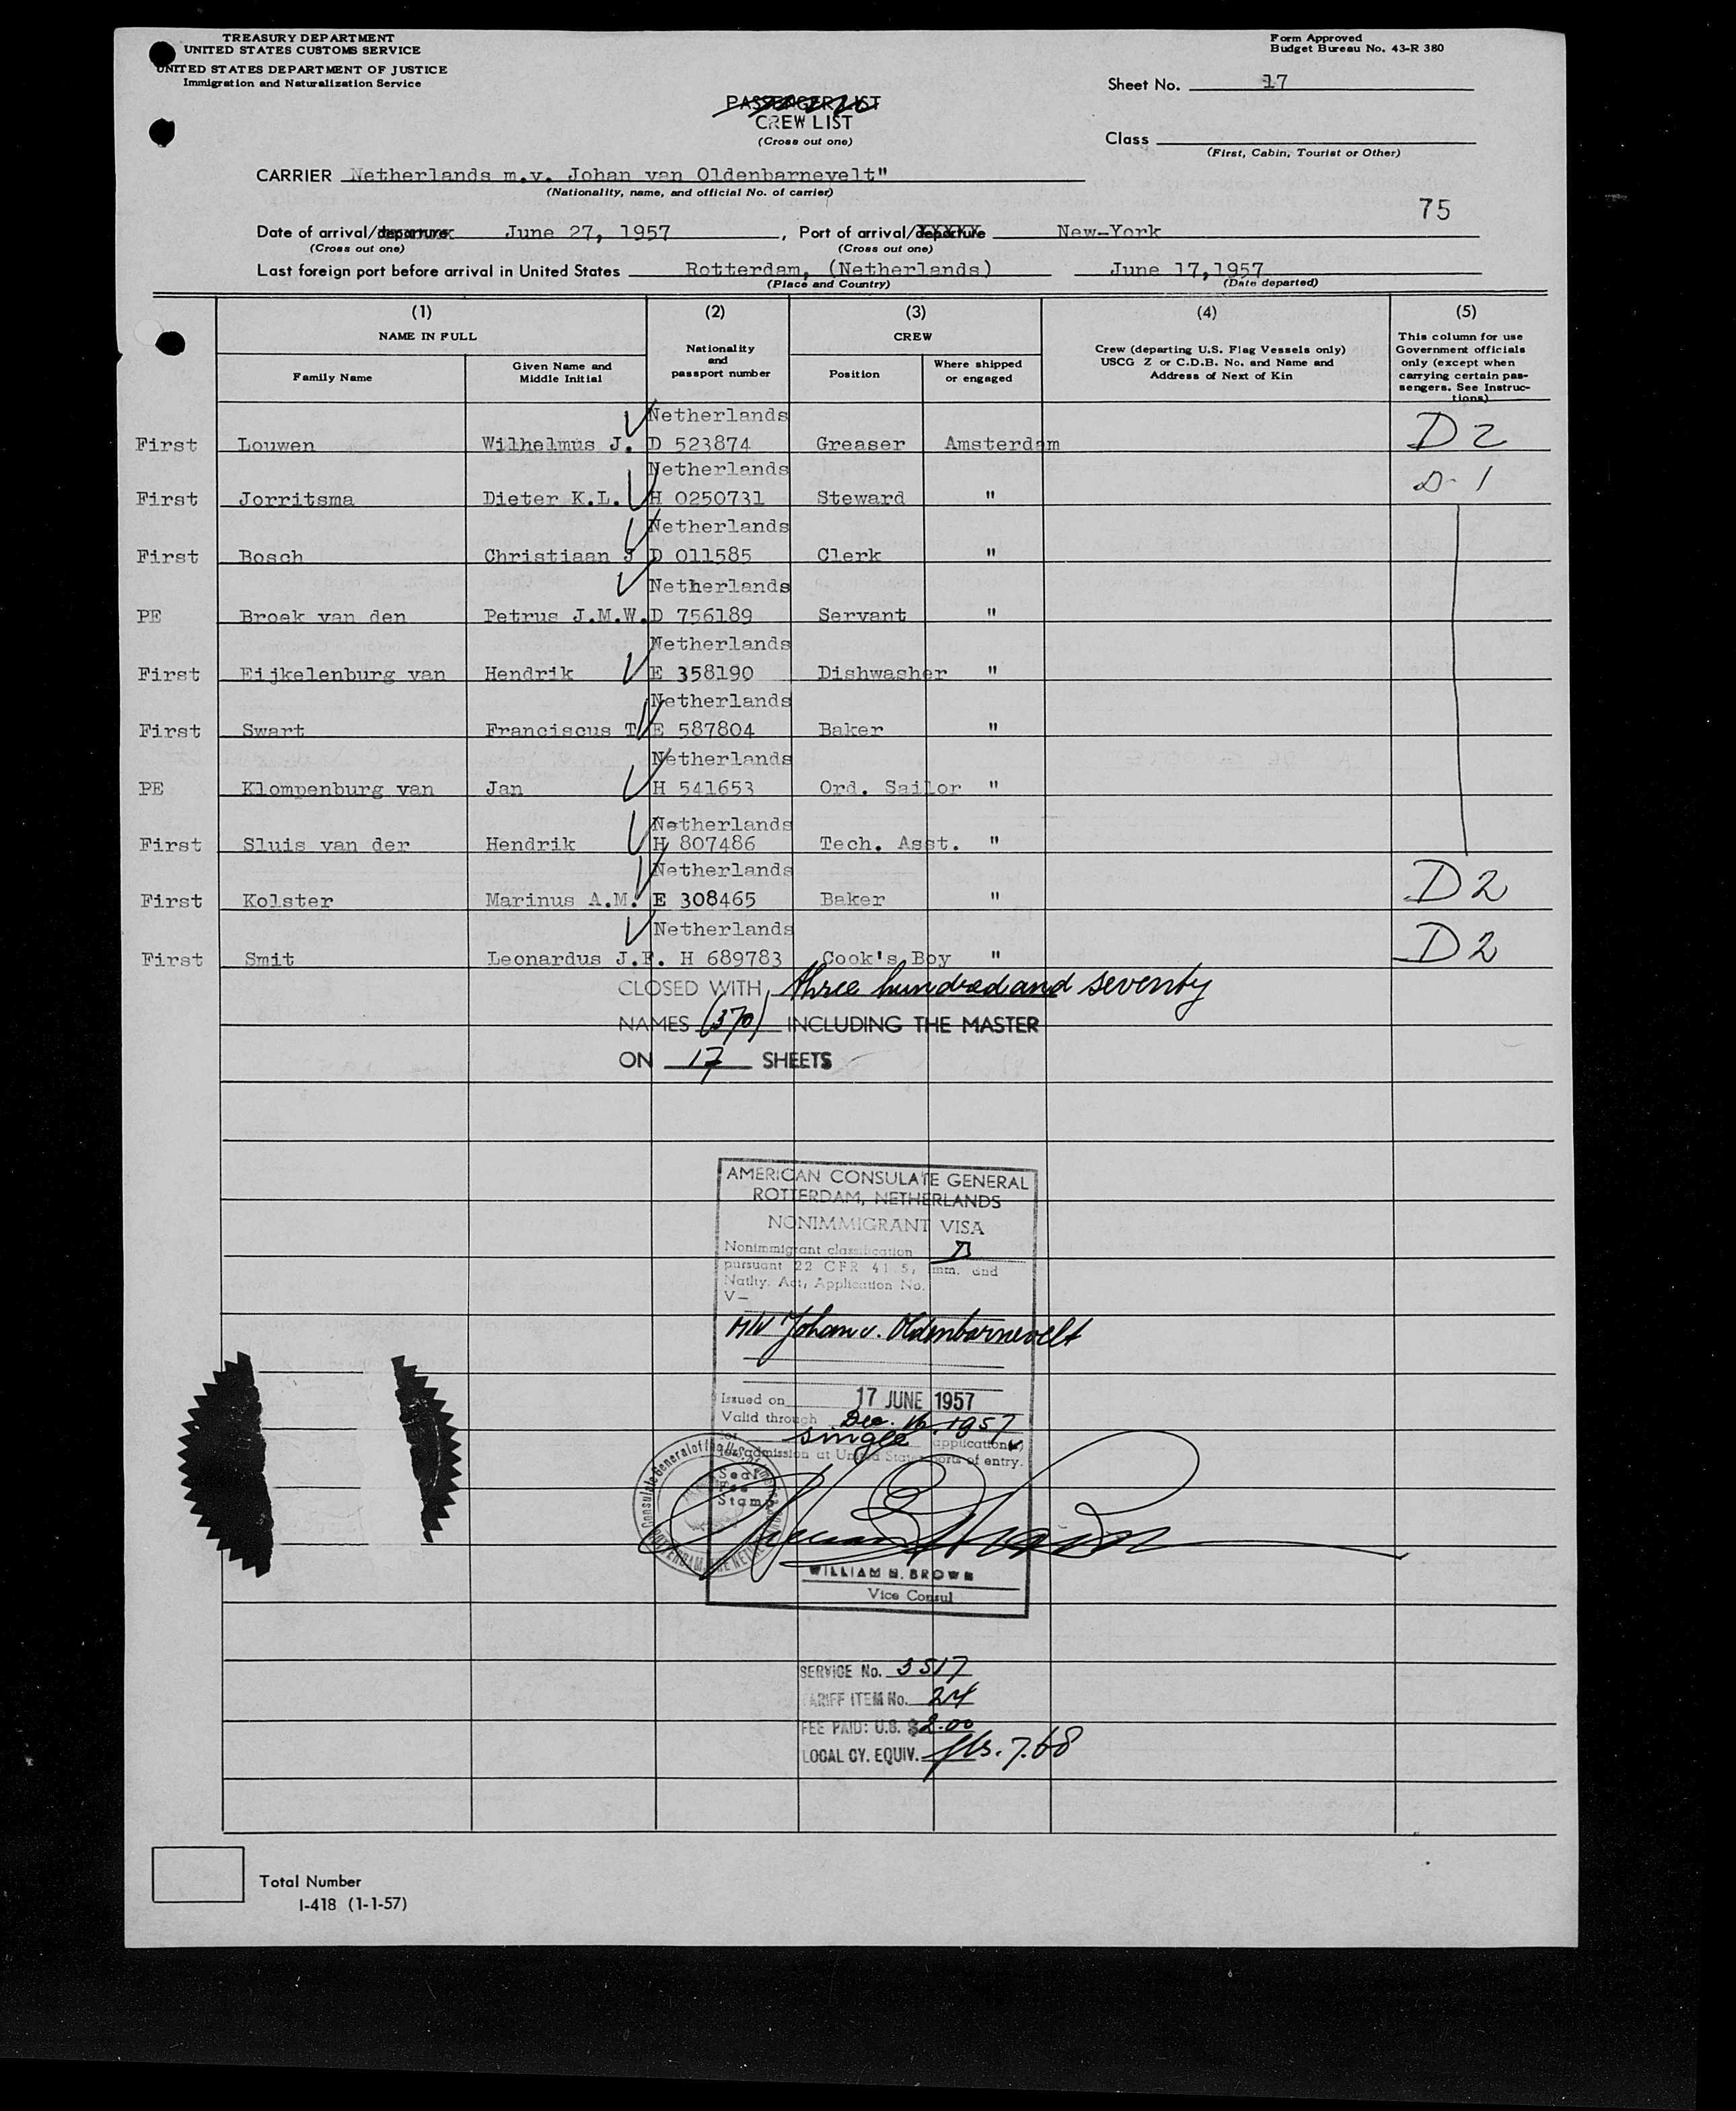 TREASURY DEPARTMENT
UNITED STATES CUSTOMS SERVICE
UNITED STATES DEPARTMENT OF JUSTICE
Immigration and Naturalization Service
Form Approved
Budget Bureau No. 43-R 380
Sheet No. 17
PASSENGER LIST
CREW LIST
(Cross out one)
Class
(First, Cabin, Tourist or Other)
CARRIER Netherlands m.v. Johan van Oldenbarnevelt"
(Nationality, name, and official No. of carrier)
75
Date of arrival/departure June 27, 1957, Port of arrival/departure New-York
(Cross out one) (Cross out one)
Last foreign port before arrival in United States Rotterdam, (Netherlands) June 17,1957
(Place and Country) (Date departed)
(1) (2) (3) (4) (5)
NAME IN FULL
Family Name
Given Name and
Middle Initial
Nationality
and
passport number
CREW
Position
Where shipped
or engaged
Crew (departing U.S. Flag Vessels only)
USCG Z or C.D.B. No. and Name and
Address of Next of Kin
This column for use
Government officials
only (except when
carrying certain pas-
sengers. See Instruc-
tions)
Netherlands
First Louwen Wilhelmus J. D 523874 Greaser Amsterdam D2
Netherlands
First Jorritsma Dieter K.L. H 0250731 Steward " D-1
Netherlands
First Bosch Christiaan J D 011585 Clerk "
Netherlands
PE Broek van den Petrus J.M.W. D 756189 Servant "
Netherlands
First Eijkelenburg van Hendrik E 358190 Dishwasher "
Netherlands
First Swart Franciscus T E 587804 Baker "
Netherlands
PE Klompenburg van Jan H 541653 Ord. Sailor "
Netherlands
First Sluis van der Hendrik H 807486 Tech. Asst. "
Netherlands
First Kolster Marinus A.M. E 308465 Baker " D2
Netherlands
First Smit Leonardus J.F. H 689783 Cook's Boy " D2
CLOSED WITH three hundred and seventy
NAMES (370) INCLUDING THE MASTER
ON 17 SHEETS
AMERICAN CONSULATE GENERAL
ROTTERDAM, NETHERLANDS
NONIMMIGRANT VISA
Nonimmigrant classification D
pursuant 22 CFR 41.5, Imm. and
Natlty. Act, Application No.
V—
M/V Johan v. Oldenbarnevelt
Issued on 17 JUNE 1957
Valid through Dec. 16, 1957
for single application(s)
for admission at United States ports of entry.
Seal
Fee
Stamp
WILLIAM H. BROWN
Vice Consul
SERVICE No. 3517
TARIFF ITEM No. 24
FEE PAID: U.S. $2.00
LOCAL CY. EQUIV. fls. 7.68
Total Number
I-418 (1-1-57)